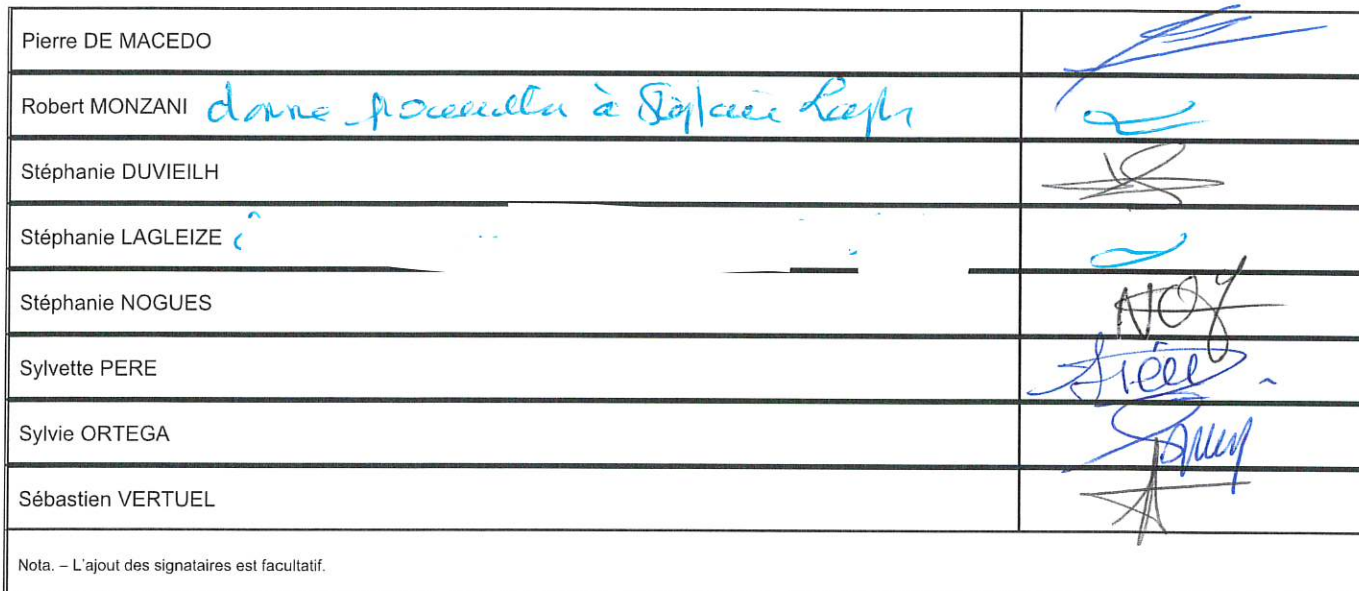 Pierre DE MACEDO
Robert MONZANI donne procuration à Stéphanie
Stéphanie DUVIEILH
Stéphanie LAGLEIZE
Stéphanie NOGUES
Sylvette PERE
Sylvie ORTEGA
Sébastien VERTUEL
Nota. – L'ajout des signataires est facultatif.